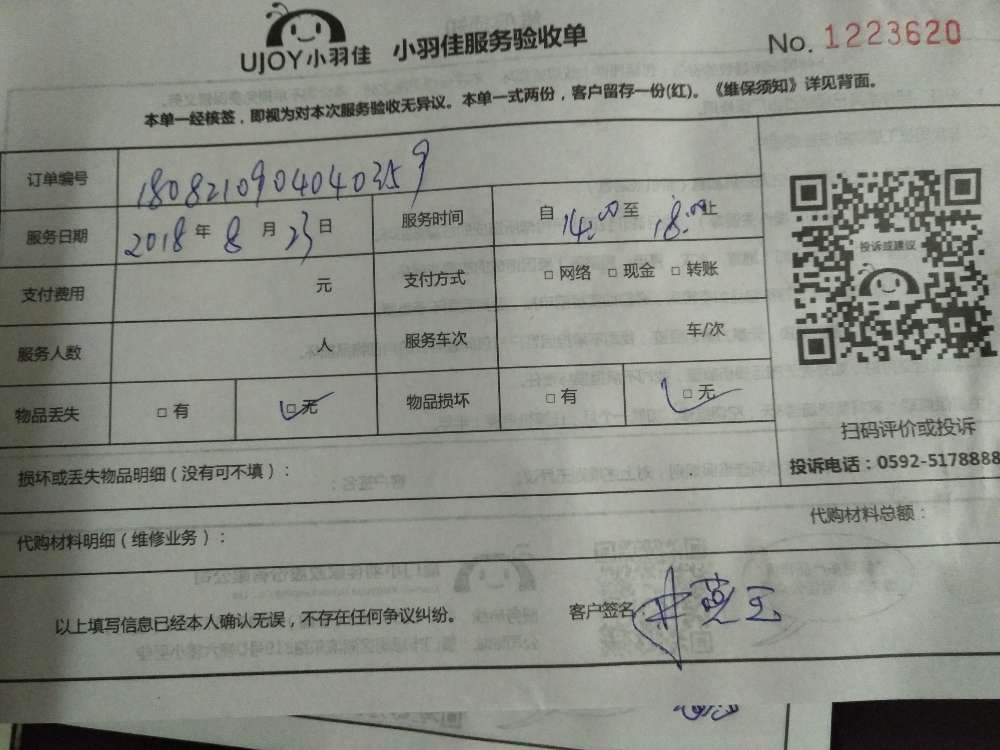 UJOY小羽佳 小羽佳服务验收单 No. 1223620
本单一经核签，即视为对本次服务验收无异议。本单一式两份，客户留存一份(红)。《维保须知》详见背面。
订单编号 1808210904040359
服务日期 2018 年 8 月 23 日 服务时间 自 14:00 至 18:00 止
支付费用 元 支付方式 □ 网络 □ 现金 □ 转账
服务人数 人 服务车次 车/次
物品丢失 □ 有 □ 无 物品损坏 □ 有 □ 无
投诉或建议
扫码评价或投诉
投诉电话：0592-5178888
损坏或丢失物品明细（没有可不填）：
代购材料明细（维修业务）： 代购材料总额：
以上填写信息已经本人确认无误，不存在任何争议纠纷。 客户签名：